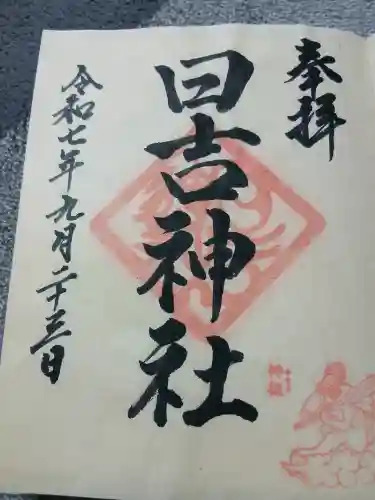 奉拝
日吉神社
令和七年九月二十三日